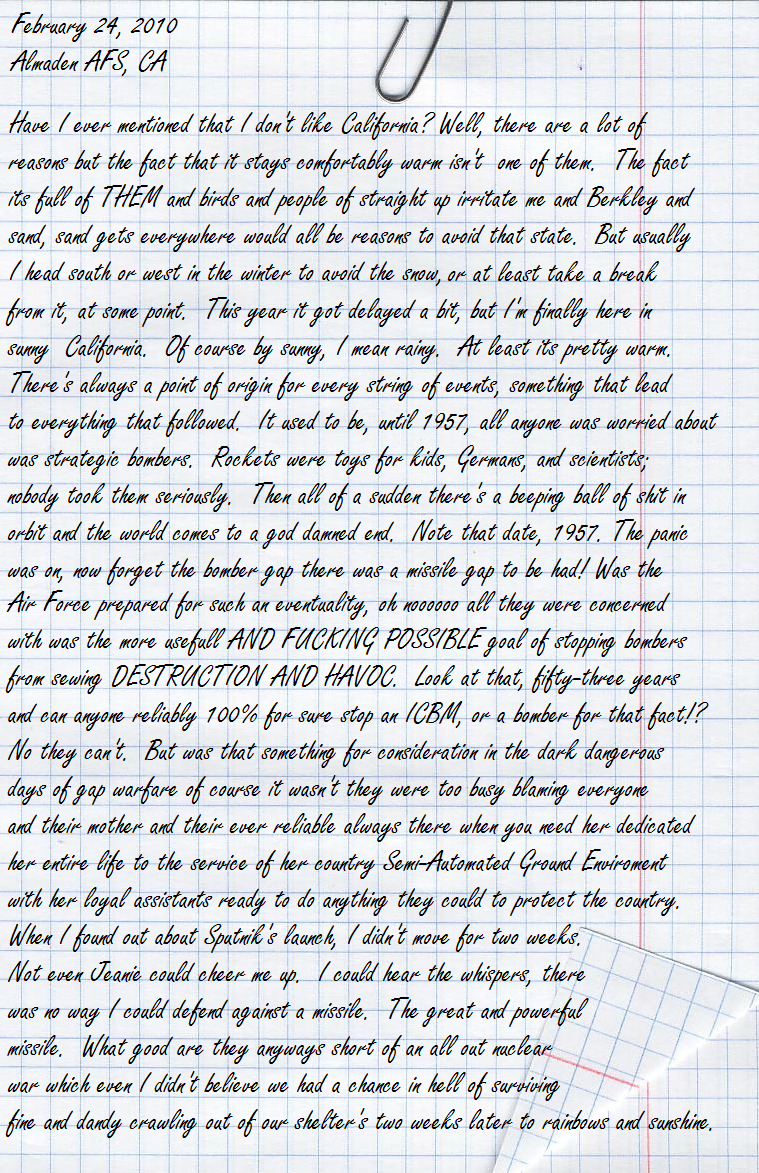 February 24, 2010
Almaden AFS, CA
Have I ever mentioned that I don't like California? Well, there are a lot of
reasons but the fact that it stays comfortably warm isn't one of them. The fact
its full of THEM and birds and people of straight up irritate me and Berkley and
sand, sand gets everywhere would all be reasons to avoid that state. But usually
I head south or west in the winter to avoid the snow, or at least take a break
from it, at some point. This year it got delayed a bit, but I'm finally here in
sunny California. Of course by sunny, I mean rainy. At least its pretty warm.
There's always a point of origin for every string of events, something that lead
to everything that followed. It used to be, until 1957, all anyone was worried about
was strategic bombers. Rockets were toys for kids, Germans, and scientists;
nobody took them seriously. Then all of a sudden there's a beeping ball of shit in
orbit and the world comes to a god damned end. Note that date, 1957. The panic
was on, now forget the bomber gap there was a missile gap to be had! Was the
Air Force prepared for such an eventuality, oh nooooo all they were concerned
with was the more usefull AND FUCKING POSSIBLE goal of stopping bombers
from sewing DESTRUCTION AND HAVOC. Look at that, fifty-three years
and can anyone reliably 100% for sure stop an ICBM, or a bomber for that fact!?
No they can't. But was that something for consideration in the dark dangerous
days of gap warfare of course it wasn't they were too busy blaming everyone
and their mother and their ever reliable always there when you need her dedicated
her entire life to the service of her country Semi-Automated Ground Enviroment
with her loyal assistants ready to do anything they could to protect the country.
When I found out about Sputnik's launch, I didn't move for two weeks.
Not even Jeanie could cheer me up. I could hear the whispers, there
was no way I could defend against a missile. The great and powerful
missile. What good are they anyways short of an all out nuclear
war which even I didn't believe we had a chance in hell of surviving
fine and dandy crawling out of our shelter's two weeks later to rainbows and sunshine.